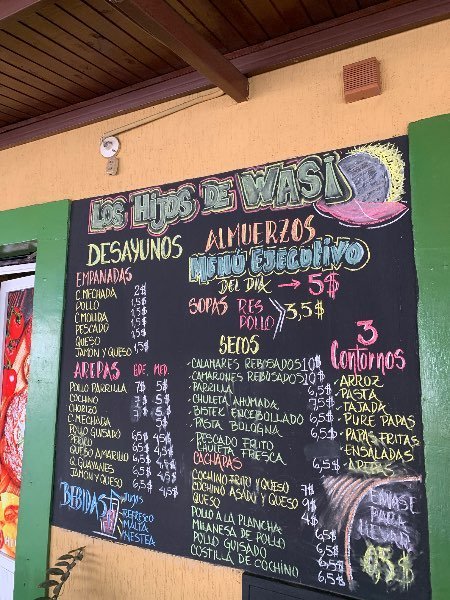 LOS HIJOS DE WASI
DESAYUNOS
EMPANADAS
C. MECHADA 2$
POLLO 1,5$
C. MOLIDA 1,5$
PESCADO 1,5$
QUESO 1,5$
JAMON Y QUESO 1,5$
AREPAS GDE. MED.
POLLO PARRILLA 7$ 5$
COCHINO 7$ 5$
CHORIZO 7$ 5$
C. MECHADA 5$
POLLO GUISADO 6,5$ 4,5$
PERICO 6,5$ 4,5$
QUESO AMARILLO 6,5$ 4,5$
Q. GUAYANES 6,5$ 4,5$
JAMON Y QUESO 6,5$ 4,5$
BEBIDAS
JUGOS
REFRESCO
MALTA
NESTEA
ALMUERZOS
MENÚ EJECUTIVO
DEL DIA → 5$
SOPAS RES
POLLO 3,5$
SECOS
CALAMARES REBOSADOS 10$
CAMARONES REBOSADOS 10$
PARRILLA
CHULETA AHUMADA
BISTEK ENCEBOLLADO
PASTA BOLOGNA 6,5$
PESCADO FRITO
CHULETA FRESCA 6,5$
CACHAPAS
COCHINO FRITO Y QUESO 7$
COCHINO ASADO Y QUESO 9$
QUESO 4$
POLLO A LA PLANCHA 6,5$
MILANESA DE POLLO 6,5$
POLLO GUISADO 6,5$
COSTILLA DE COCHINO 6,5$
3
Contornos
ARROZ
PASTA
TAJADA
PURE PAPAS
PAPAS FRITAS
ENSALADAS
AREPAS
ENVASE
PARA
LLEVAR